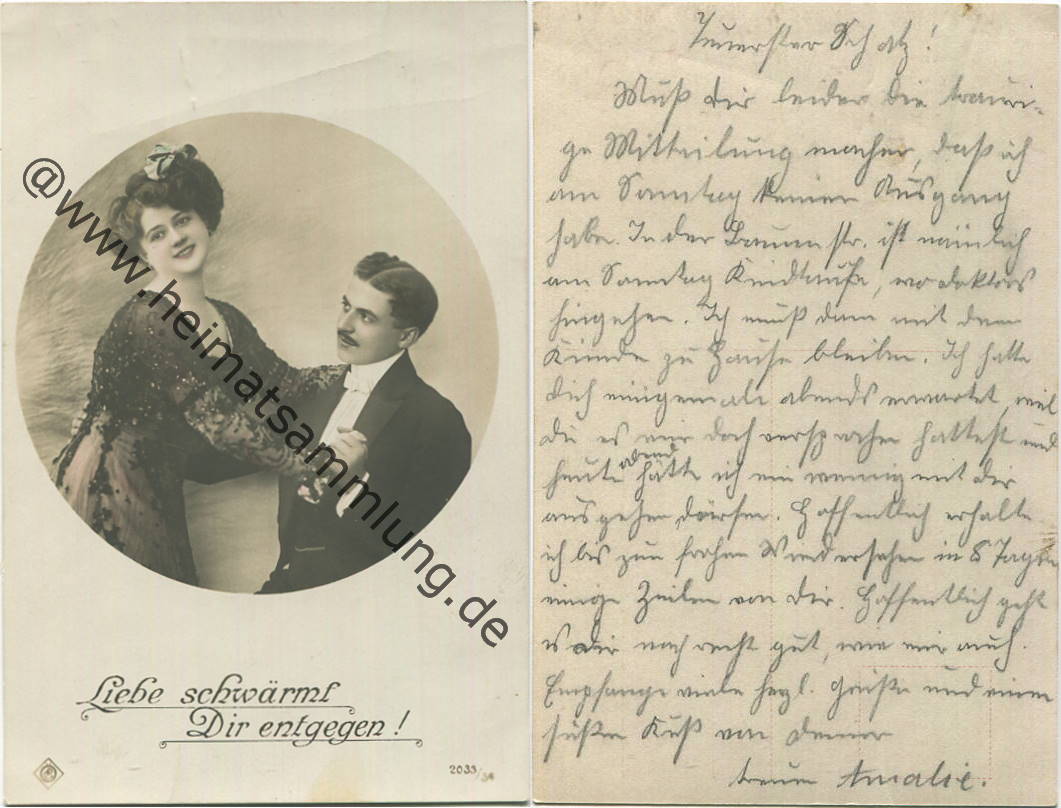 @www.heimatsammlung.de
Liebe schwärmt
Dir entgegen!
2033/34
Teuerster Schatz!
Muß dir leider die trauri-
ge Mitteilung machen, daß ich
am Sonntag keinen Ausgang
habe. In der Baumstr. ist nämlich
am Sonntag Kindtaufe, wo Doktors
hingehen. Ich muß dann mit dem
Kinde zu Hause bleiben. Ich hatte
dich einigemale abends erwartet, weil
du es mir doch versprochen hattest und
heute abend hätte ich ein wenig mit dir
ausgehen dürfen. Hoffentlich erhalte
ich bis zum frohen Wiedersehen in 8 Tagen
einige Zeilen von dir. Hoffentlich geht
es dir noch recht gut, wie mir auch.
Empfange viele herzl. Grüße und einen
süßen Kuß von deiner
treuen Amalie.